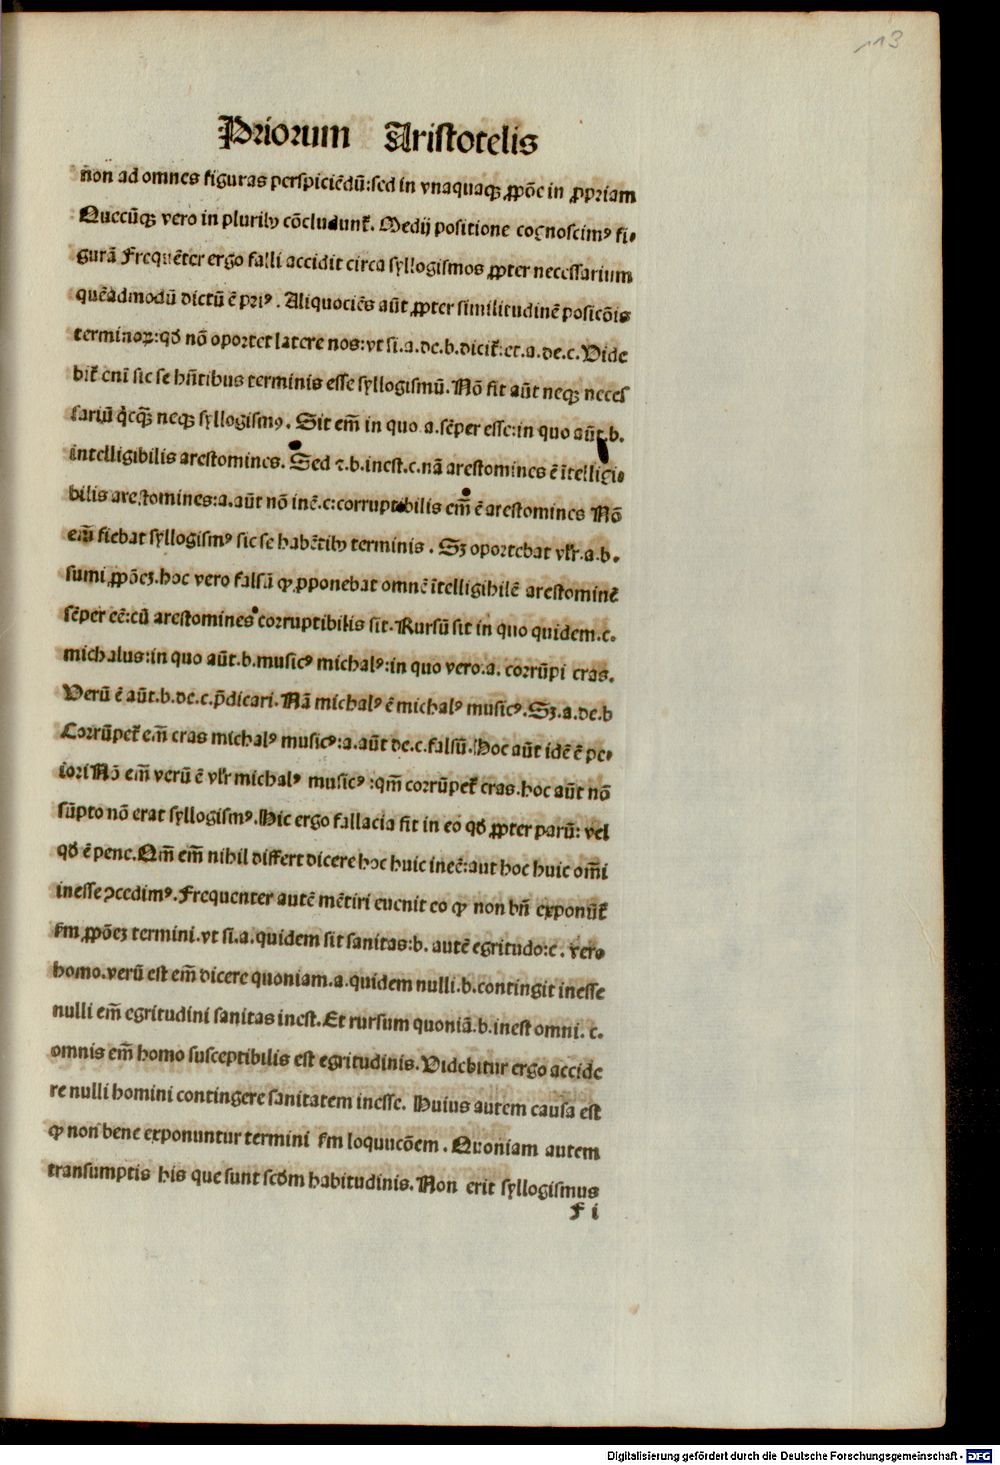 113
Priorum Aristotelis
nõn ad omnes figuras perspiciẽdũ:sed in vnaquaqꝫ ꝓpõe in ꝓpriam
Quecũqꝫ vero in pluribꝰ cõcludunt᷑. Medij positione cognoscimꝰ fi-
gurã Frequẽter ergo falli accidit circa syllogismos ꝓpter necessarium
quẽadmodũ dictũ ẽ priꝰ. Aliquociẽs aũt ꝓpter similitudinẽ posicõis
terminoꝝ:qđ nõ oportet latere nos:vt si.a.de.b.dicit᷑:et.a.de.c.Vide
bit᷑ eni sic se hñtibus terminis esse syllogismũ.Nõ fit aũt neqꝫ neces
sariũ q̇cq̃ꝫ neqꝫ syllogismꝰ. Sit em̃ in quo a.sẽper esse:in quo aũt.b.
intelligibilis arestomines. Sed ⁊.b.inest.c.nã arestomines ẽ ĩtelligi-
bilis arestomines:a.aũt nõ inẽ.c:corruptibilis em̃ ẽ arestomines Nõ
em̃ fiebat syllogismꝰ sic se habẽtibꝰ terminis. Sꝫ oportebat vlr̃.a.b.
sumi ꝓpõeꝫ.hoc vero falsũ ꝙ ꝓponebat omnẽ ĩtelligibilẽ arestominẽ
sẽper eẽ:cũ arestomines corruptibilis sit.Rursũ sit in quo quidem.c.
michalus:in quo aũt.b.musicꝰ michalꝰ:in quo vero.a. corrũpi cras.
Verũ ẽ aũt.b.de.c.p̃dicari.Nã michalꝰ ẽ michalꝰ musicꝰ.Sꝫ.a.de.b
Corrũpet᷑ em̃ cras michalꝰ musicꝰ:a.aũt de.c.falsũ.Hoc aũt idẽ ẽ pe-
iori Nõ em̃ verũ ẽ vlr̃ michalꝰ musicꝰ:qm̃ corrũpet᷑ cras.hoc aũt nõ
sũpto nõ erat syllogismꝰ.Hic ergo fallacia fit in eo qđ ꝓpter parũ: vel
qđ ẽ pene.Qm̃ em̃ nihil differt dicere hoc huic ineẽ:aut hoc huic om̃i
inesse ꝯcedimꝰ.Frequenter autẽ mẽtiri euenit eo ꝙ non bñ exponũt᷑
ẜm ꝓpõeꝫ termini.vt si.a.quidem sit sanitas:b. autẽ egritudo:c. vero
homo.verũ est em̃ dicere quoniam.a.quidem nulli.b.contingit inesse
nulli em̃ egritudini sanitas inest.Et rursum quoniã.b.inest omni. c.
omnis em̃ homo susceptibilis est egritudinis.Videbitur ergo accide
re nulli homini contingere sanitatem inesse. Huius autem causa est
ꝙ non bene exponuntur termini ẜm loquucõem. Quoniam autem
transumptis his que sunt scđm habitudinis.Non erit syllogismus
F i
Digitalisierung gefördert durch die Deutsche Forschungsgemeinschaft - DFG